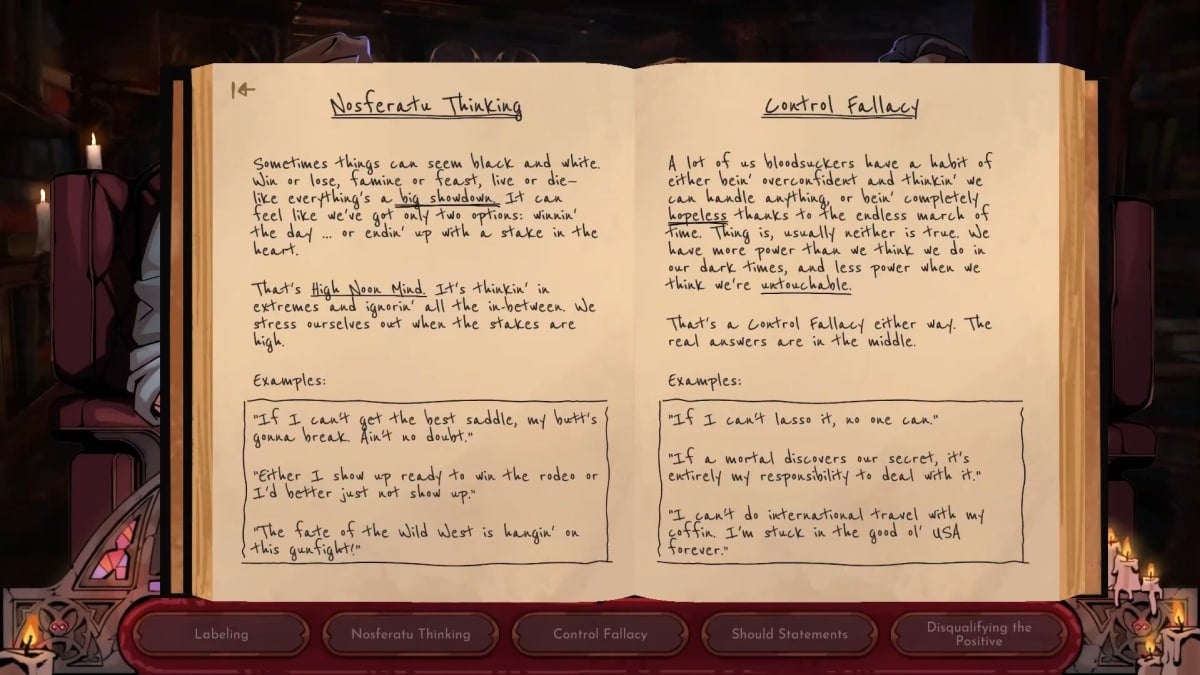 Nosferatu Thinking
Sometimes things can seem black and white.
Win or lose, famine or feast, live or die—
like everything's a big showdown. It can
feel like we've got only two options: winnin'
the day ... or endin' up with a stake in the
heart.
That's High Noon Mind. It's thinkin' in
extremes and ignorin' all the in-between. We
stress ourselves out when the stakes are
high.
Examples:
"If I can't get the best saddle, my butt's
gonna break. Ain't no doubt."
"Either I show up ready to win the rodeo or
I'd better just not show up."
"The fate of the Wild West is hangin' on
this gunfight!"
Control Fallacy
A lot of us bloodsuckers have a habit of
either bein' overconfident and thinkin' we
can handle anything, or bein' completely
hopeless thanks to the endless march of
time. Thing is, usually neither is true. We
have more power than we think we do in
our dark times, and less power when we
think we're untouchable.
That's a Control Fallacy either way. The
real answers are in the middle.
Examples:
"If I can't lasso it, no one can."
"If a mortal discovers our secret, it's
entirely my responsibility to deal with it."
"I can't do international travel with my
coffin. I'm stuck in the good ol' USA
forever."
Labeling
Nosferatu Thinking
Control Fallacy
Should Statements
Disqualifying the
Positive